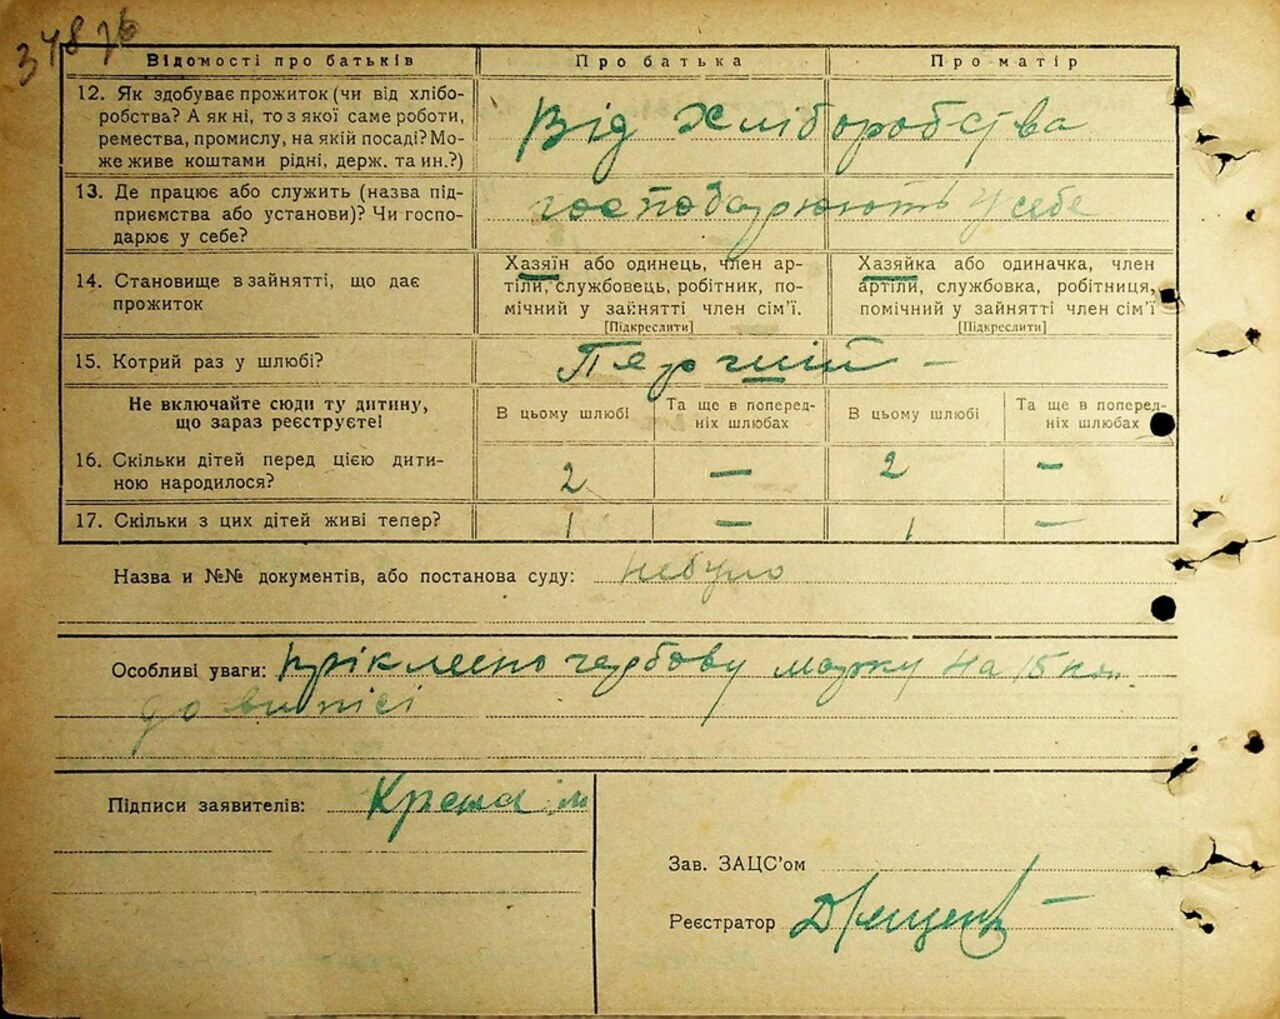 34876
Відомості про батьків Про батька Про матір
12. Як здобуває прожиток (чи від хлібо-
робства? А як ні, то з якої саме роботи,
ремества, промислу, на якій посаді? Мо-
же живе коштами рідні, держ. та ин.?)
Від хліборобства
13. Де працює або служить (назва під-
приємства або установи)? Чи госпо-
дарює у себе?
господарюють у себе
14. Становище в зайнятті, що дає
прожиток
Хазяїн або одинець, член ар-
тіли, службовець, робітник, по-
мічний у зайнятті член сім’ї.
[Підкреслити]
Хазяйка або одиначка, член
артіли, службовка, робітниця,
помічний у зайнятті член сім’ї
[Підкреслити]
15. Котрий раз у шлюбі?
Першій –
Не включайте сюди ту дитину,
що зараз реєструєте!
В цьому шлюбі
Та ще в поперед-
ніх шлюбах
В цьому шлюбі
Та ще в поперед-
ніх шлюбах
16. Скільки дітей перед цією дити-
ною народилося?
2 — 2 —
17. Скільки з цих дітей живі тепер?
1 — 1 —
Назва и №№ документів, або постанова суду: небуло
Особливі уваги: пріклеено гербову марку на 15 коп.
до виписі
Підписи заявителів:
Зав. ЗАЦС’ом
Реєстратор